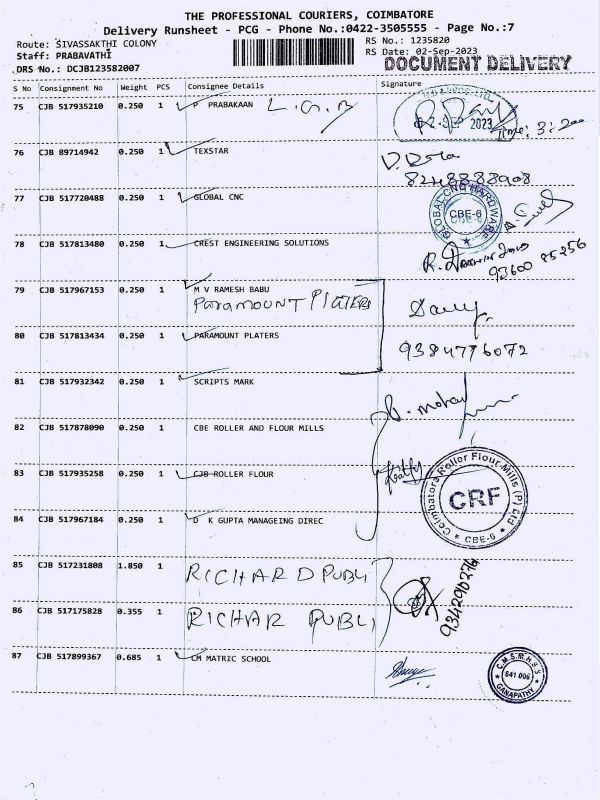 THE PROFESSIONAL COURIERS, COIMBATORE
Delivery Runsheet - PCG - Phone No.:0422-3505555 - Page No.:7
Route: SIVASSAKTHI COLONY
Staff: PRABAVATHI
DRS No.: DCJB123582007
RS No.: 1235820
RS Date: 02-Sep-2023
DOCUMENT DELIVERY
S No Consignment No Weight PCS Consignee Details Signature
75 CJB 517935210 0.250 1 P PRABAKAAN
2023 Time: 3:2
76 CJB 89714942 0.250 1 TEXSTAR
8248888908
77 CJB 517720488 0.250 1 GLOBAL CNC
GLOBAL CNC HARDWARE
CBE-6
78 CJB 517813480 0.250 1 CREST ENGINEERING SOLUTIONS
93600 85256
79 CJB 517967153 0.250 1 M V RAMESH BABU
Paramount Platers
80 CJB 517813434 0.250 1 PARAMOUNT PLATERS
9384776072
81 CJB 517932342 0.250 1 SCRIPTS MARK
82 CJB 517878090 0.250 1 CBE ROLLER AND FLOUR MILLS
83 CJB 517935258 0.250 1 CJB ROLLER FLOUR
Coimbatore Roller Flour Mills (P) Ltd
CRF
CBE-6
84 CJB 517967184 0.250 1 D K GUPTA MANAGEING DIREC
85 CJB 517231808 1.850 1 RICHARD PUBLI
86 CJB 517175828 0.355 1 RICHAR PUBLI
87 CJB 517899367 0.685 1 CM MATRIC SCHOOL
C.M.S.M.H.S.S
641 006
GANAPATHY